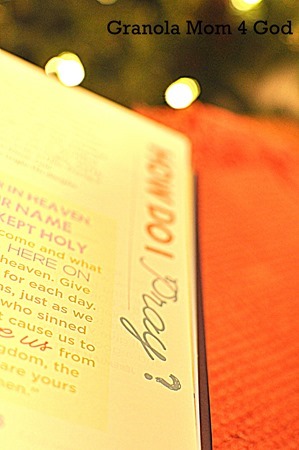 Granola Mom 4 God
HOW DO I
Pray?
IN HEAVEN
R NAME
KEPT HOLY
come and what
HERE ON
heaven. Give
for each day.
ns, just as we
who sinned
t cause us to
e us from
ngdom, the
are yours
men."